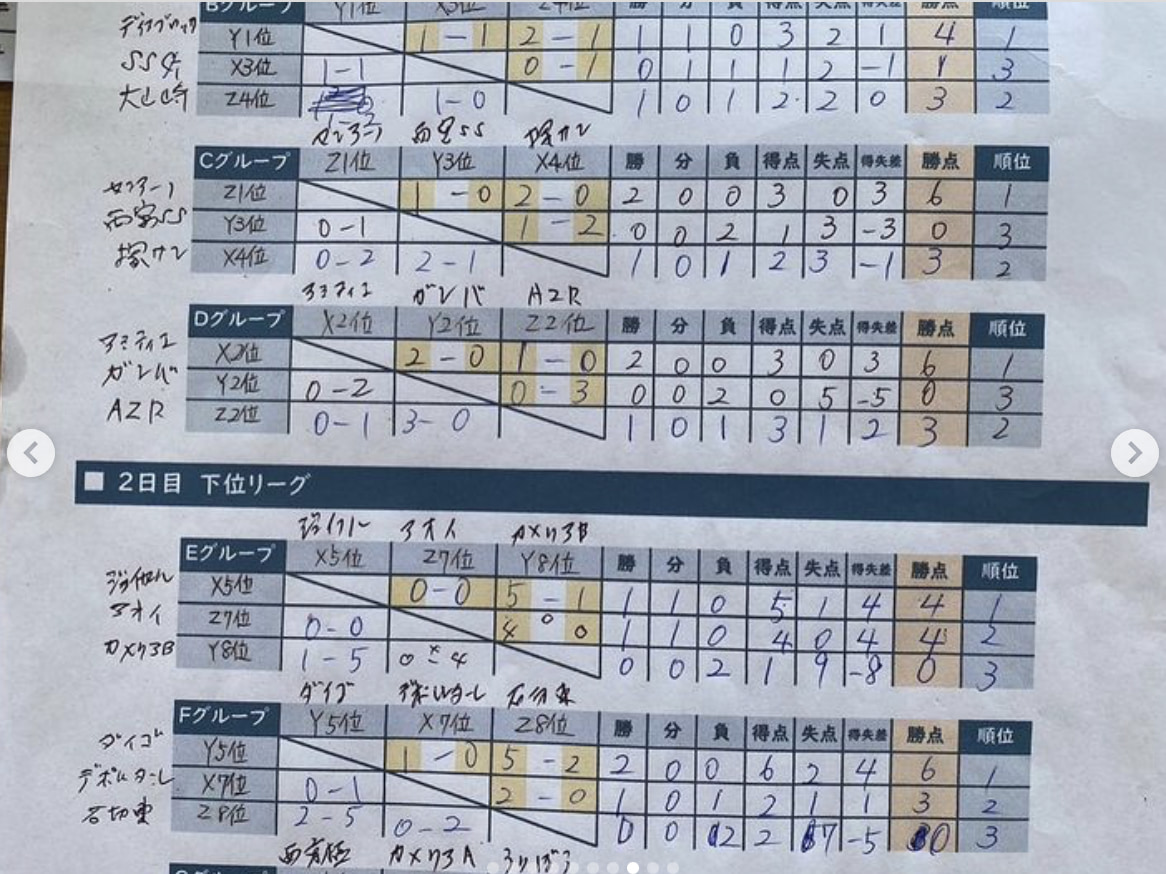 Bグループ Y1位 X3位 Z4位 勝 分 負 得点 失点 得失差 勝点 順位
Y1位 1-1 2-1 1 1 0 3 2 1 4 1
X3位 1-1 0-1 0 1 1 1 2 -1 1 3
大山崎 Z4位 1-0 1 0 1 2 2 0 3 2
西宮SS
Cグループ Z1位 Y3位 X4位 勝 分 負 得点 失点 得失差 勝点 順位
Z1位 1-0 2-0 2 0 0 3 0 3 6 1
西宮SS Y3位 0-1 1-2 0 0 2 1 3 -3 0 3
X4位 0-2 2-1 1 0 1 2 3 -1 3 2
アミティエ ガンバ AZR
Dグループ X2位 Y2位 Z2位 勝 分 負 得点 失点 得失差 勝点 順位
アミティエ X2位 2-0 1-0 2 0 0 3 0 3 6 1
ガンバ Y2位 0-2 0-3 0 0 2 0 5 -5 0 3
AZR Z2位 0-1 3-0 1 0 1 3 1 2 3 2
■ 2日目 下位リーグ
アオイ カメリアB
Eグループ X5位 Z7位 Y8位 勝 分 負 得点 失点 得失差 勝点 順位
X5位 0-0 5-1 1 1 0 5 1 4 4 1
アオイ Z7位 0-0 4-0 1 1 0 4 0 4 4 2
カメリアB Y8位 1-5 0-4 0 0 2 1 9 -8 0 3
石切東
Fグループ Y5位 X7位 Z8位 勝 分 負 得点 失点 得失差 勝点 順位
ダイゴ Y5位 1-0 5-2 2 0 0 6 2 4 6 1
X7位 0-1 2-0 1 0 1 2 1 1 3 2
石切東 Z8位 2-5 0-2 0 0 2 2 7 -5 0 3
西京極 カメリアA